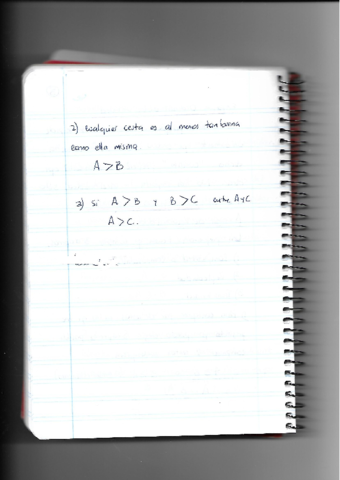 2) Cualquier cesta es al menos tan buena
como ella misma
A > B
3) Si A > B y B > C entre A y C
A > C.